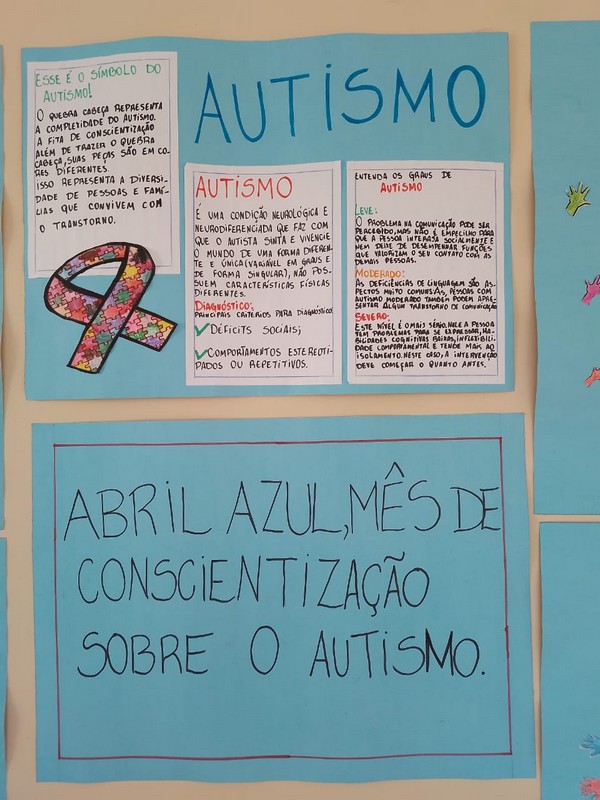 ESSE É O SÍMBOLO DO
AUTISMO!
O QUEBRA CABEÇA REPRESENTA
A COMPLETIDADE DO AUTISMO.
A FITA DE CONSCIENTIZAÇÃO
ALÉM DE TRAZER O QUEBRA
CABEÇA, SUAS PEÇAS SÃO EM CO-
RES DIFERENTES.
ISSO REPRESENTA A DIVERSI-
DADE DE PESSOAS E FAMÍ-
LIAS QUE CONVIVEM COM
O TRANSTORNO.
AUTISMO
AUTISMO
É UMA CONDIÇÃO NEUROLÓGICA E
NEURODIFERENCIADA QUE FAZ COM
QUE O AUTISTA SINTA E VIVENCIE
O MUNDO DE UMA FORMA DIFEREN-
TE E ÚNICA (VARIÁVEL EM GRAUS E
DE FORMA SINGULAR), NÃO POS-
SUEM CARACTERÍSTICAS FÍSICAS
DIFERENTES.
DIAGNÓSTICO:
PRINCIPAIS CRITÉRIOS PARA DIAGNÓSTICO
✓ DÉFICITS SOCIAIS;
✓ COMPORTAMENTOS ESTEREOTI-
PADOS OU REPETITIVOS.
ENTENDA OS GRAUS DE
AUTISMO
LEVE:
O PROBLEMA NA COMUNICAÇÃO PODE SER
PERCEBIDO, MAS NÃO É EMPECILHO PARA
QUE A PESSOA INTERAJA SOCIALMENTE E
NEM DEIXE DE DESEMPENHAR FUNÇÕES
QUE VALORIZAM O SEU CONTATO COM AS
DEMAIS PESSOAS.
MODERADO:
AS DEFICIÊNCIAS DE LINGUAGEM SÃO AS-
PECTOS MUITO COMUNS. AS PESSOAS COM
AUTISMO MODERADO TAMBÉM PODEM APRE-
SENTAR ALGUM TRANSTORNO DE COMUNICAÇÃO
SEVERO:
ESTE NÍVEL É O MAIS SÉRIO. NELE A PESSOA
TEM PROBLEMAS PARA SE EXPRESSAR, HA-
BILIDADES COGNITIVAS BAIXAS, INFLEXIBILI-
DADE COMPORTAMENTAL E TENDE MAIS AO
ISOLAMENTO. NESTE CASO, A INTERVENÇÃO
DEVE COMEÇAR O QUANTO ANTES.
ABRIL AZUL, MÊS DE
CONSCIENTIZAÇÃO
SOBRE O AUTISMO.